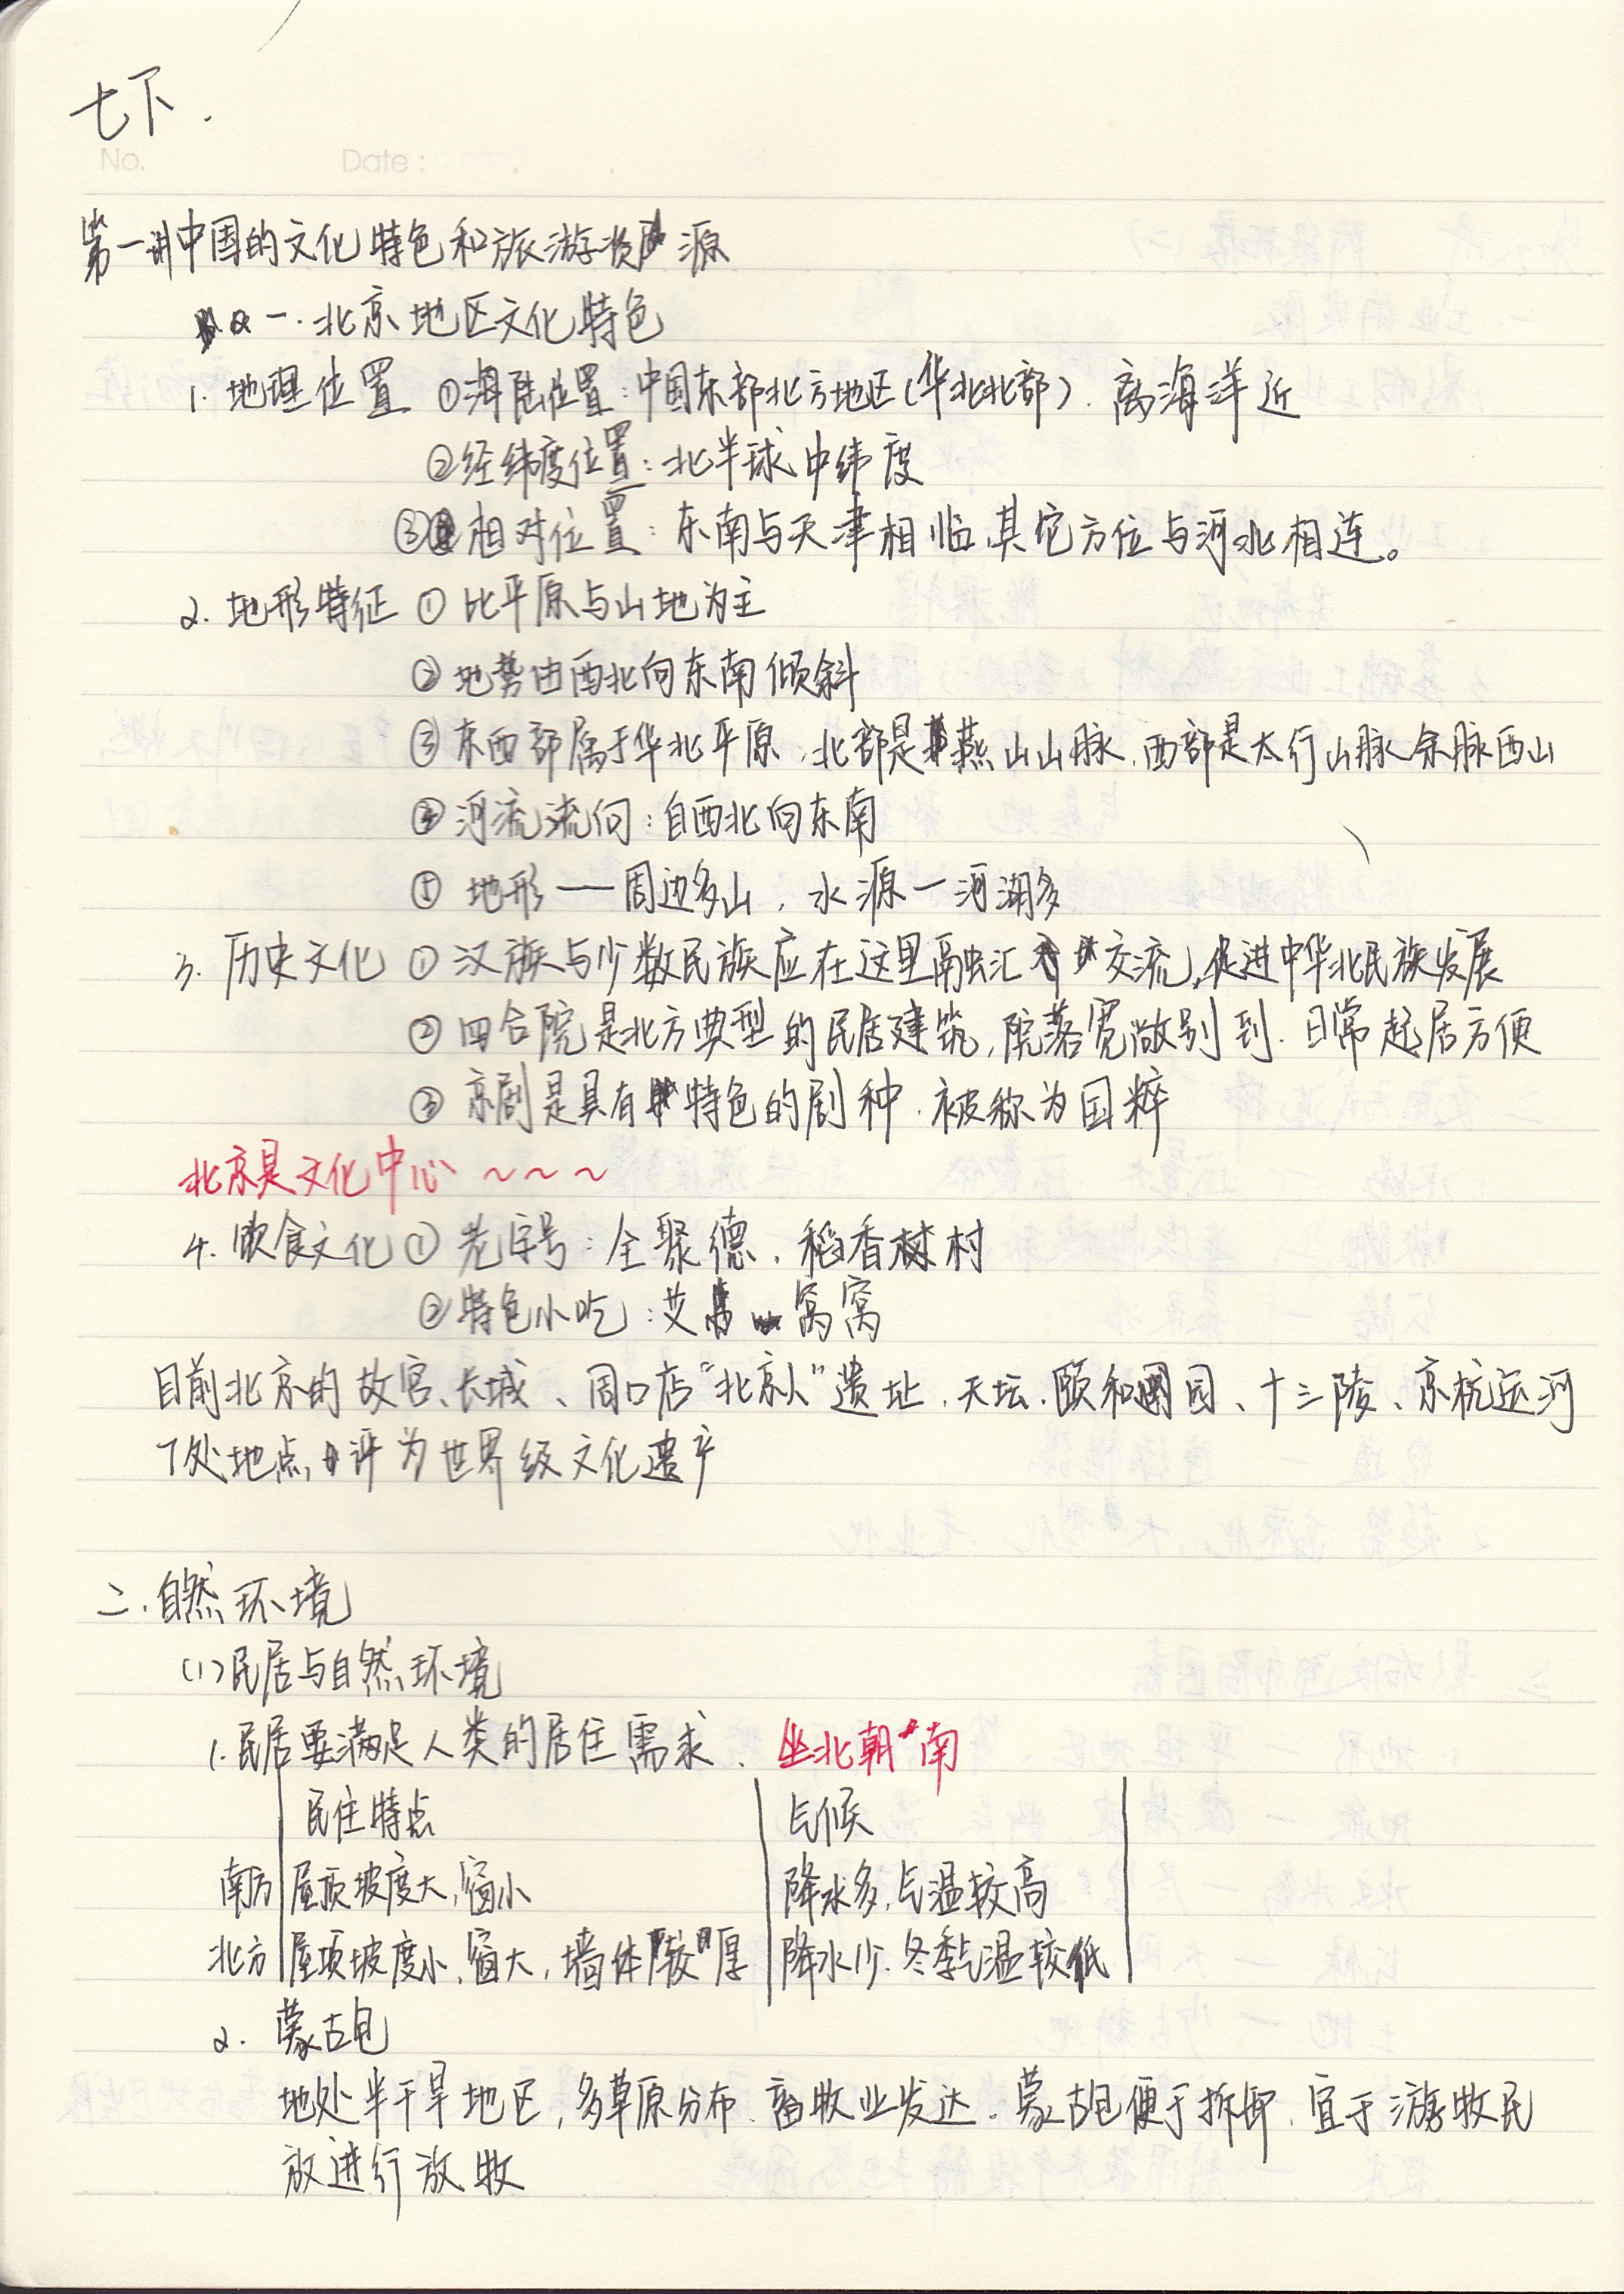 七下.
No. Date:
第一讲中国的文化特色和旅游资源
一.北京地区文化特色
1.地理位置 ①海陆位置:中国东部北方地区(华北北部).离海洋近
②经纬度位置:北半球中纬度
③相对位置:东南与天津相临,其它方位与河北相连。
2.地形特征 ①比平原与山地为主
②地势由西北向东南倾斜
③东西部属于华北平原,北部是燕山山脉,西部是太行山脉余脉西山
④河流流向:自西北向东南
⑤地形——周边多山,水源—河湖多
3.历史文化 ①汉族与少数民族应在这里融汇交流,促进中华北民族发展
②四合院是北方典型的民居建筑,院落宽敞别到.日常起居方便
③京剧是具有特色的剧种.被称为国粹
北京是文化中心~~~
4.饮食文化 ①老字号:全聚德.稻香村
②特色小吃:艾窝窝
目前北京的故宫、长城、周口店“北京人”遗址,天坛.颐和园、十三陵、京杭运河
7处地点,评为世界级文化遗产
二.自然环境
(1)民居与自然环境
1.民居要满足人类的居住需求.坐北朝南
民住特点 气候
南方 屋顶坡度大,窗小 降水多,气温较高
北方 屋顶坡度小,窗大,墙体较厚 降水少.冬季气温较低
2.蒙古包
地处半干旱地区,多草原分布.畜牧业发达.蒙古包便于拆卸.宜于游牧民
放进行放牧